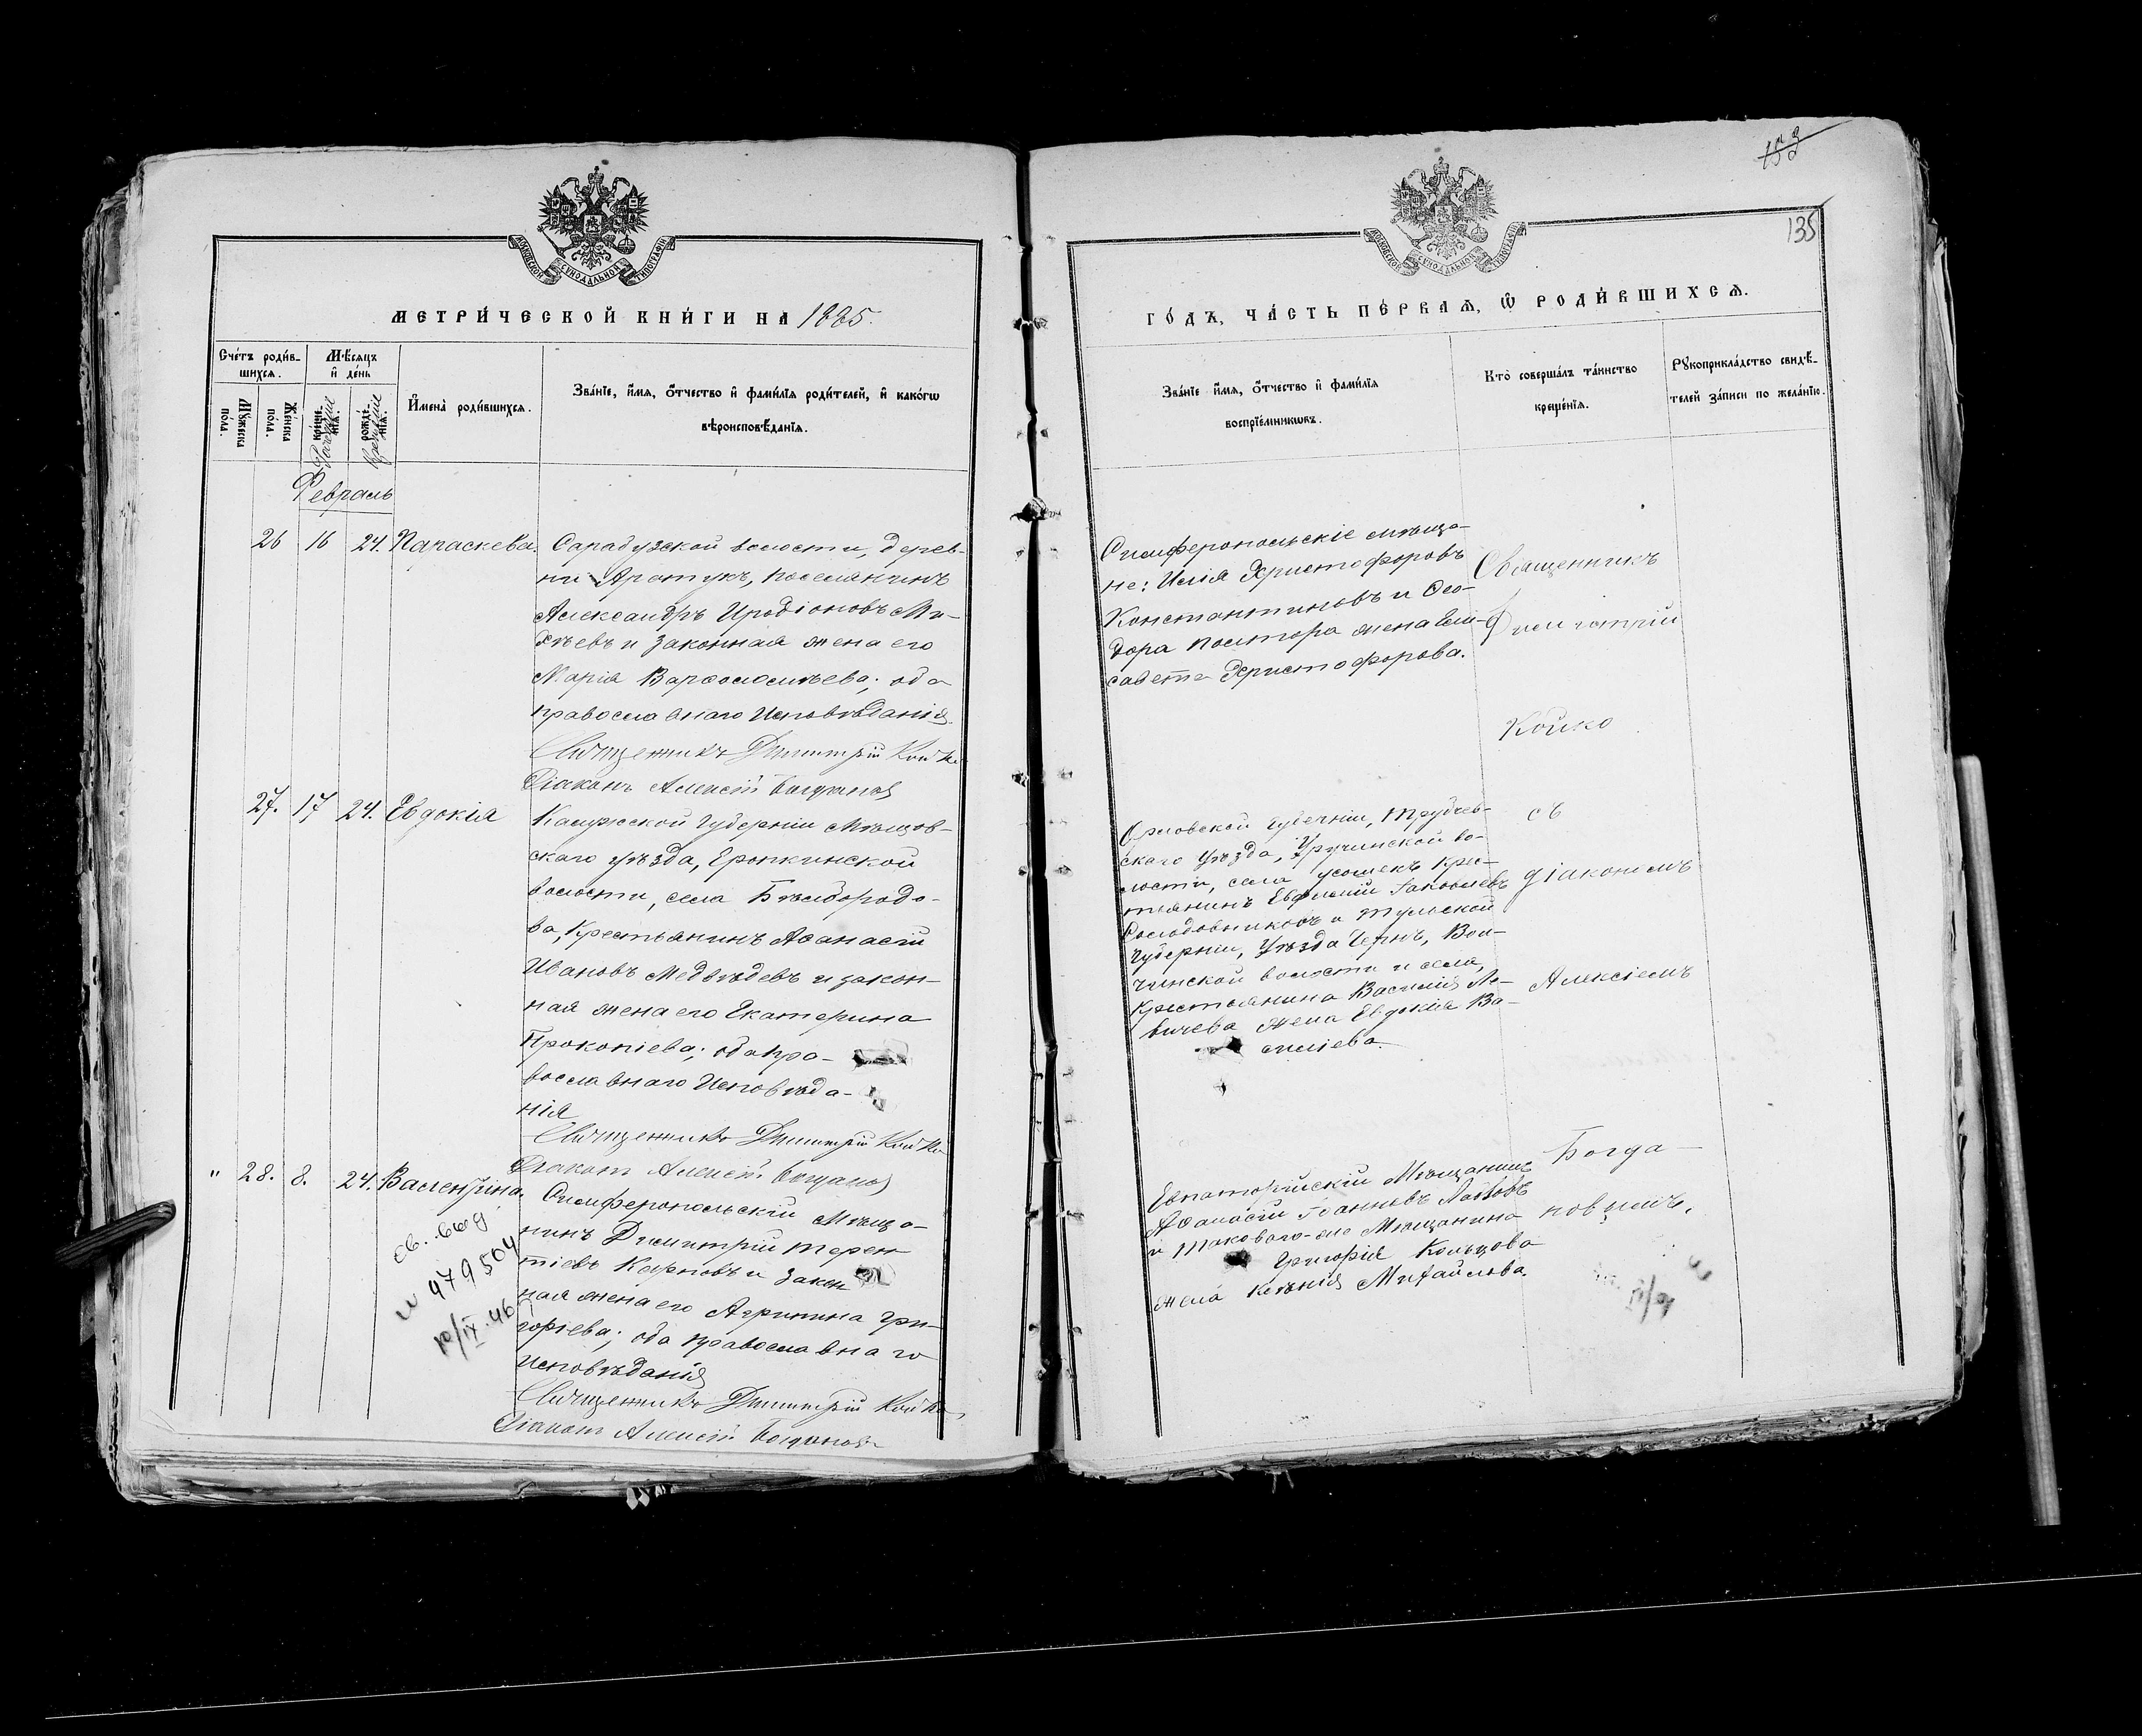 МОСКОВСКОЙ СУНОДАЛЬНОЙ ТИПОГРАФІИ
МЕТРИ́ЧЕСКОЙ КНИ́ГИ НА 1885.
Сче́тъ роди́в-
шихсѧ.
Мѣ́сяцъ
и҆ де́нь
Мꙋ́жеска
по́ла.
Же́нска
по́ла.
креще́-
нїѧ.
рожде́-
нїѧ.
И҆мена̀ роди́вшихсѧ.
Зва́нїе, и҆́мѧ, ѻ҆́тчество и҆ фами́лїѧ роди́телей, и҆ како́гѡ
вѣроисповѣ́данїѧ.
Февраль
26 16 24. Параскева.
Сарабузской волости, дерев-
ни Аратукъ, поселянинъ
Александръ Иродіоновъ Ми-
хѣевъ и законная жена его
Марія Варѳоломѣева; оба
православнаго Исповѣданія.
Священникъ Димитрій Койко
Діаконъ Алексій Богдановъ
27. 17 24. Евдокія
Калужской Губерніи Мѣщов-
скаго уѣзда, Еропкинской
волости, села Бѣлобородо-
ва, Крестьянинъ Аѳанасій
Ивановъ Медвѣдевъ и закон-
ная жена его Екатерина
Прокопіева; оба пра-
вославнаго Исповѣда-
нія
Священникъ Димитрій Койко
Діаконъ Алексій Богдановъ
" 28. 8. 24. Валентина.
св. выд
N 479504
10/IX.46
Симферопольскій Мѣща-
нинъ Димитрій Терен-
тіевъ Карповъ и закон
ная жена его Агрипина Гри-
горіева; оба православнаго
Исповѣданія
Священникъ Димитрій Койко,
Діаконъ Алексій Богдановъ
135
МОСКОВСКОЙ СУНОДАЛЬНОЙ ТИПОГРАФІИ
ГО́ДЪ, ЧА́СТЬ ПЕ́РВАѦ, Ѽ РОДИ́ВШИХСѦ.
Зва́нїе и҆́мѧ, ѻ҆́тчество и҆ фами́лїѧ
воспрїе́мникѡвъ.
Кто̀ соверша́лъ та́инство
креще́нїѧ.
Рꙋкоприкла́дство свидѣ́-
телей за́писи по жела́нїю.
Симферопольскіе мѣща-
не: Илія Христофоровъ
Константиновъ и Ѳео-
дора Полтора жена Ели-
савета Христофорова.
Священникъ
Димитрій
Койко
Орловской губерніи, Трубчев-
скаго уѣзда,
волости, села крес-
тьянинъ Евфимій Іаковлевъ
Солодовниковъ и Тульской
Губерніи, уѣзда Чернь,
волости и села,
Крестьянина Василія
жена Евдокія Ва-
силіева.
съ
діакономъ
Алексіемъ
Богда-
новымъ.
Евпаторійскій Мѣщанинъ
Аѳанасій Іоанновъ
и такового-же Мѣщанина
Григорія Кольцова
жена Ксенія Михайлова.